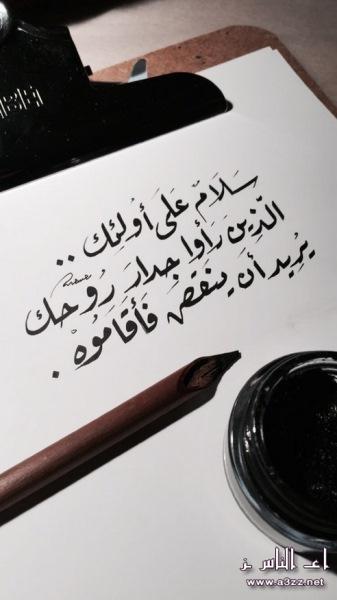 سَلَامٌ عَلَى أُولَئِكَ ..
الّذِينَ رَأَوا جِدَارَ رُوحَك
يُرِيد أن يَنقَضّ فَأَقَامُوهْ .
اعـ الناس ـز
www.a3zz.net